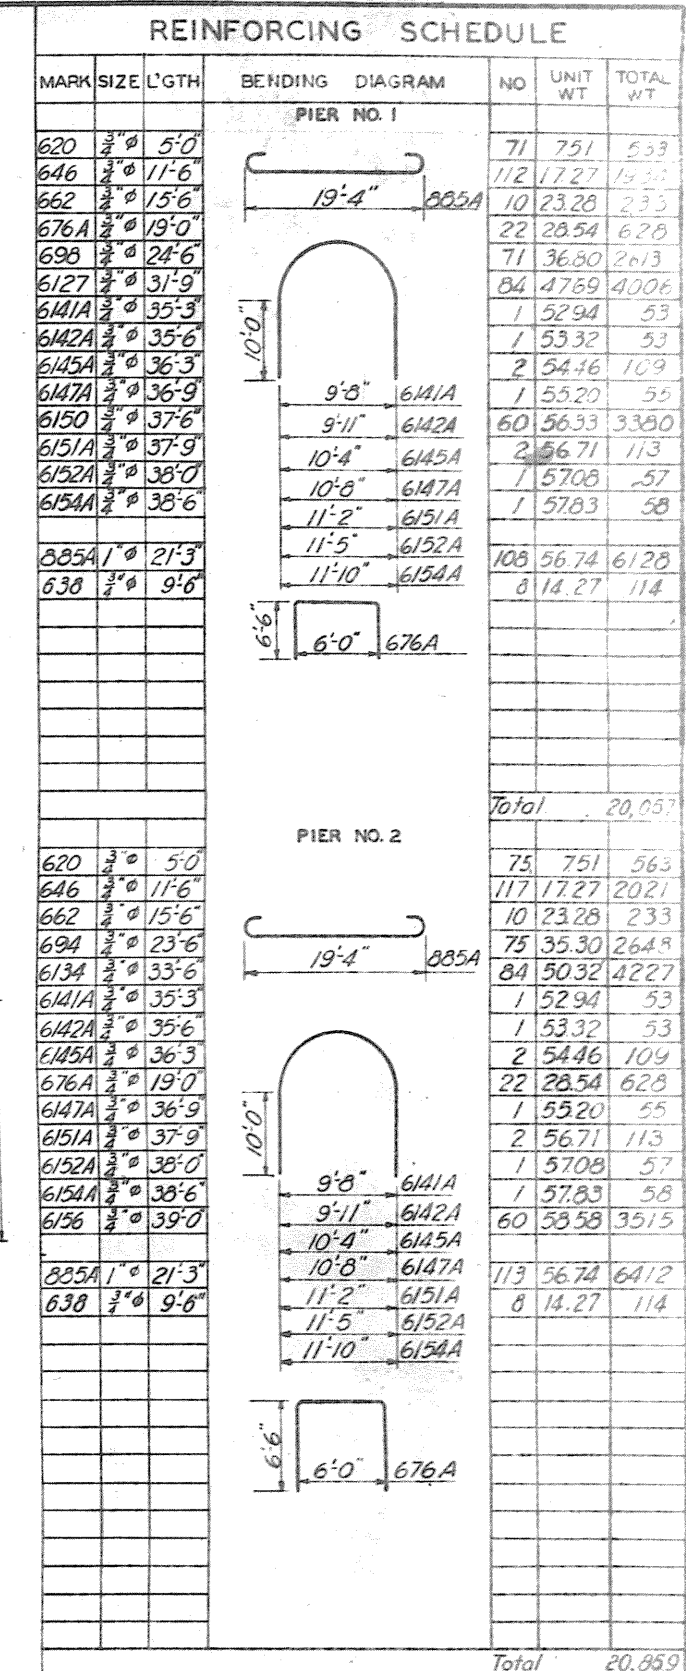 REINFORCING SCHEDULE
MARK SIZE L'GTH BENDING DIAGRAM NO UNIT WT TOTAL WT
PIER NO. 1
620 3/4"ø 5'-0" 71 7.51 533
646 3/4"ø 11'-6" 112 17.27 1934
662 3/4"ø 15'-6" 10 23.28 233
676A 3/4"ø 19'-0" 22 28.54 628
698 3/4"ø 24'-6" 71 36.80 2613
6127 3/4"ø 31'-9" 84 47.69 4006
6141A 3/4"ø 35'-3" 1 52.94 53
6142A 3/4"ø 35'-6" 1 53.32 53
6145A 3/4"ø 36'-3" 2 54.46 109
6147A 3/4"ø 36'-9" 1 55.20 55
6150 3/4"ø 37'-6" 60 56.33 3380
6151A 3/4"ø 37'-9" 2 56.71 113
6152A 3/4"ø 38'-0" 1 57.08 57
6154A 3/4"ø 38'-6" 1 57.83 58
885A 1"ø 21'-3" 108 56.74 6128
638 3/4"ø 9'-6" 8 14.27 114
19'-4" 885A
10'-0"
9'-8" 6141A
9'-11" 6142A
10'-4" 6145A
10'-8" 6147A
11'-2" 6151A
11'-5" 6152A
11'-10" 6154A
6'-6"
6'-0" 676A
Total 20,057
PIER NO. 2
620 3/4"ø 5'-0" 75 7.51 563
646 3/4"ø 11'-6" 117 17.27 2021
662 3/4"ø 15'-6" 10 23.28 233
694 3/4"ø 23'-6" 75 35.30 2648
6134 3/4"ø 33'-6" 84 50.32 4227
6141A 3/4"ø 35'-3" 1 52.94 53
6142A 3/4"ø 35'-6" 1 53.32 53
6145A 3/4"ø 36'-3" 2 54.46 109
676A 3/4"ø 19'-0" 22 28.54 628
6147A 3/4"ø 36'-9" 1 55.20 55
6151A 3/4"ø 37'-9" 2 56.71 113
6152A 3/4"ø 38'-0" 1 57.08 57
6154A 3/4"ø 38'-6" 1 57.83 58
6156 3/4"ø 39'-0" 60 58.58 3515
885A 1"ø 21'-3" 113 56.74 6412
638 3/4"ø 9'-6" 8 14.27 114
19'-4" 885A
10'-0"
9'-8" 6141A
9'-11" 6142A
10'-4" 6145A
10'-8" 6147A
11'-2" 6151A
11'-5" 6152A
11'-10" 6154A
6'-6"
6'-0" 676A
Total 20,859